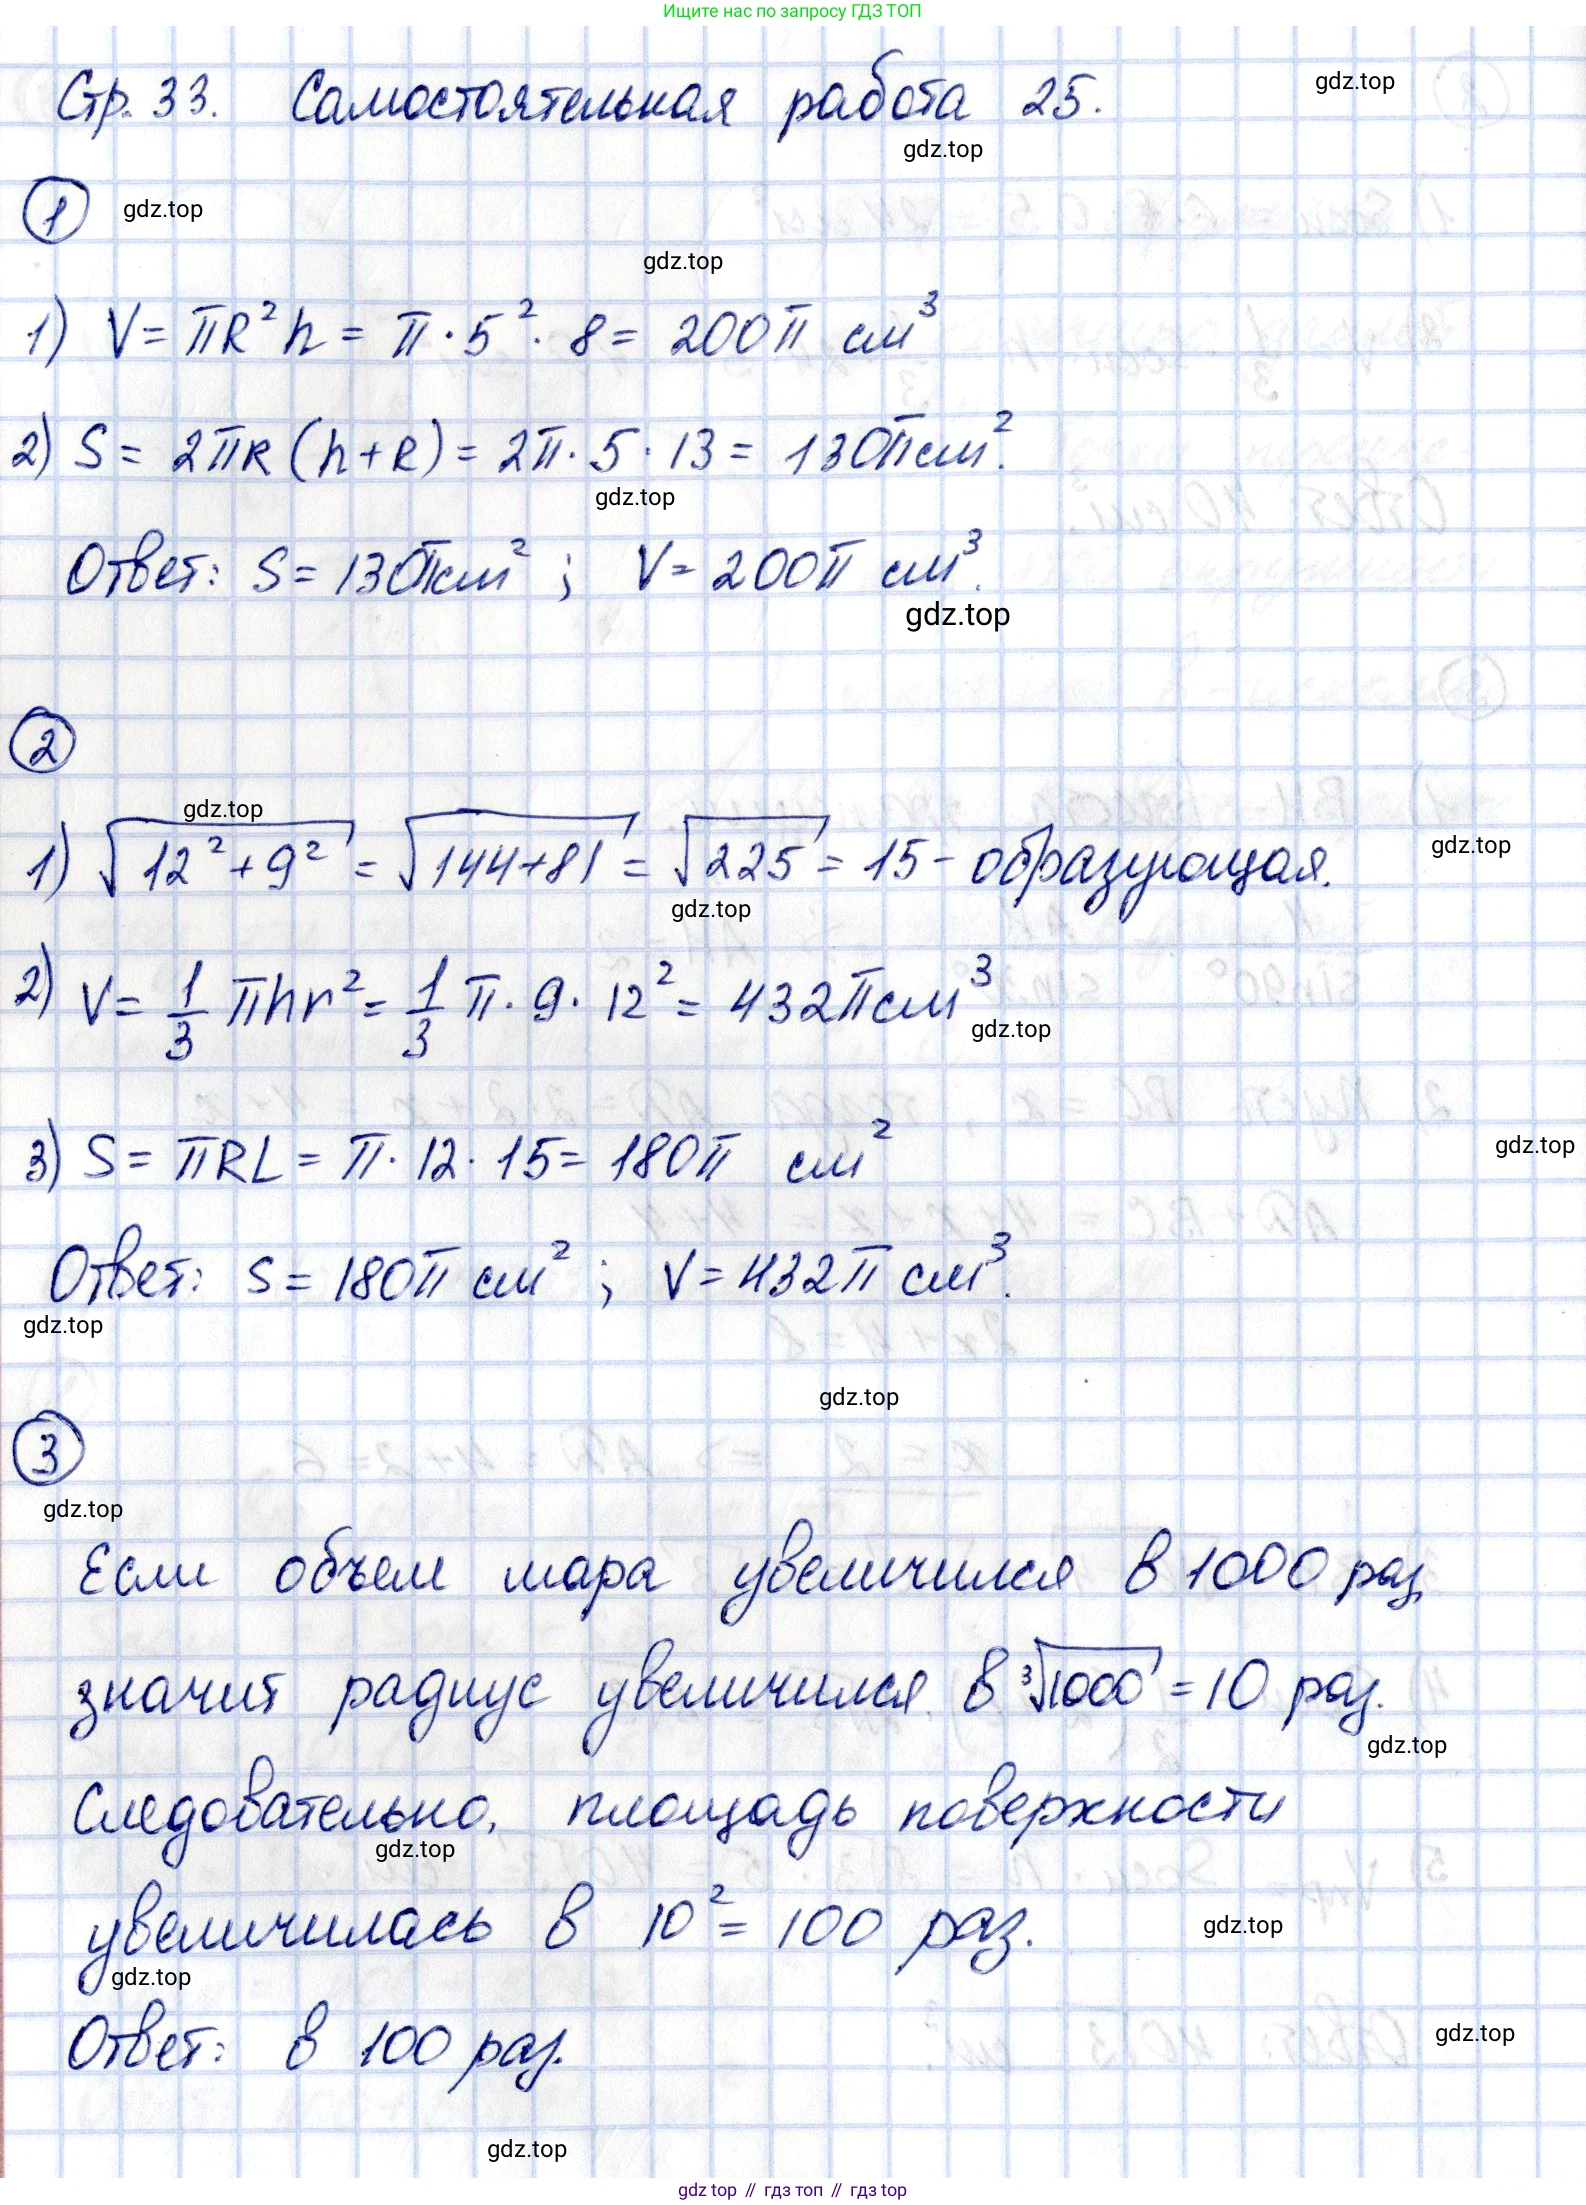 Ищите нас по запросу ГДЗ ТОП
Стр. 33. Самостоятельная работа 25.
gdz.top
gdz.top
1
gdz.top
gdz.top
1) V = πR²h = π · 5² · 8 = 200π см³
2) S = 2πR (h + R) = 2π · 5 · 13 = 130π см².
gdz.top
Ответ: S = 130π см² ; V = 200π см³.
gdz.top
2
gdz.top
1) √(12² + 9²) = √(144 + 81) = √225 = 15 - образующая.
gdz.top
gdz.top
2) V = 1/3 πhr² = 1/3 π · 9 · 12² = 432π см³
gdz.top
3) S = πRL = π · 12 · 15 = 180π см²
gdz.top
Ответ: S = 180π см² ; V = 432π см³.
gdz.top
gdz.top
3
gdz.top
Если объем шара увеличился в 1000 раз,
значит радиус увеличился в ³√1000 = 10 раз.
gdz.top
Следовательно, площадь поверхности
gdz.top
увеличилась в 10² = 100 раз.
gdz.top
gdz.top
Ответ: в 100 раз.
gdz.top
gdz.top
gdz.top // гдз топ // гдз top